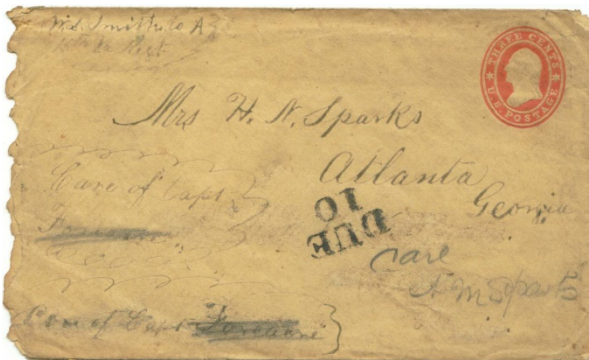 Wd. Smith Co A
Regt
THREE CENTS
U.S. POSTAGE
Mrs H. N. Sparks
Atlanta
Georgia
Care of Capt
DUE
10
care
H M Sparks
Care of Capt